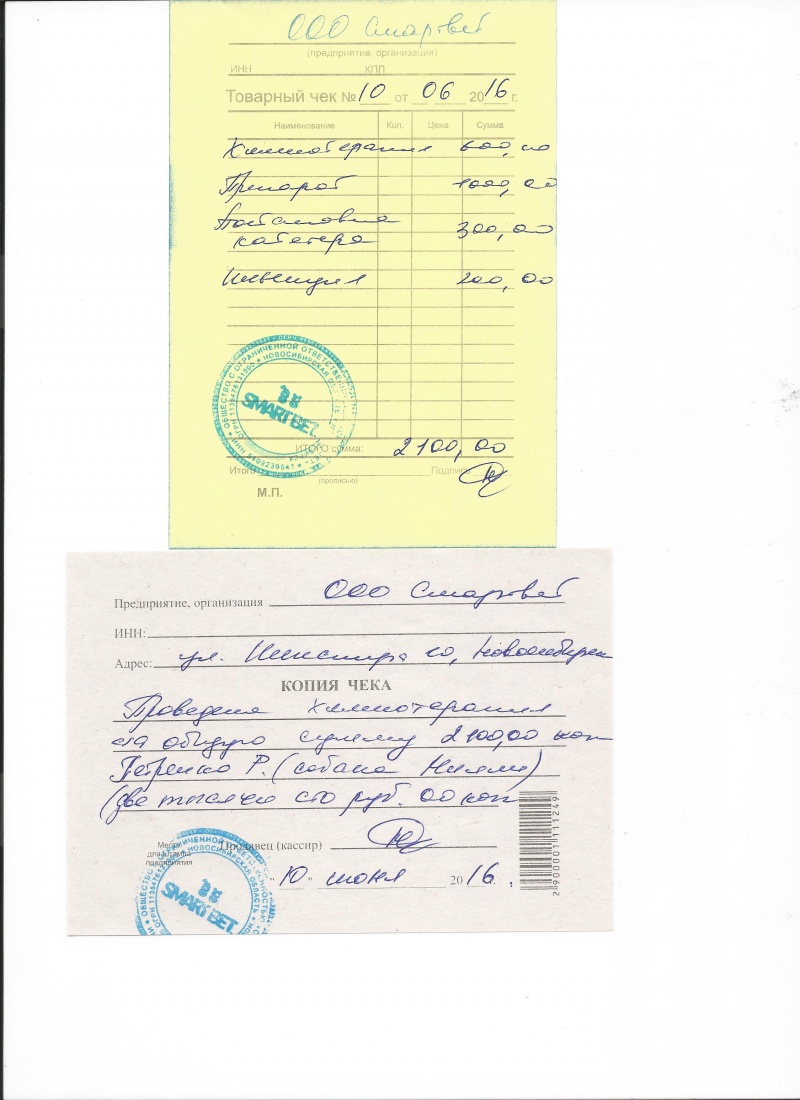 ООО Смартвет
(предприятие, организация)
ИНН КПП
Товарный чек № 10 от 06 2016 г.
Наименование Кол. Цена Сумма
Химиотерапия 600,00
Препарат 1000,00
Постановка
катетера 300,00
Инъекция 200,00
ИТОГО сумма: 2100,00
Итого Подпись
(прописью)
М.П.
ОБЩЕСТВО С ОГРАНИЧЕННОЙ ОТВЕТСТВЕННОСТЬЮ
НОВОСИБИРСКАЯ ОБЛАСТЬ
ИНН 5409239541
SMARTВЕТ
Предприятие, организация ООО Смартвет
ИНН:
Адрес: ул. 10, Новосибирск
КОПИЯ ЧЕКА
Проведена химиотерапия
на общую сумму 2100,00 коп
Петренко Р. (собака)
(две тысячи сто руб. 00 коп
Место для штампа предприятия
Продавец (кассир)
"10" июня 2016.
2900001111249
SMARTВЕТ